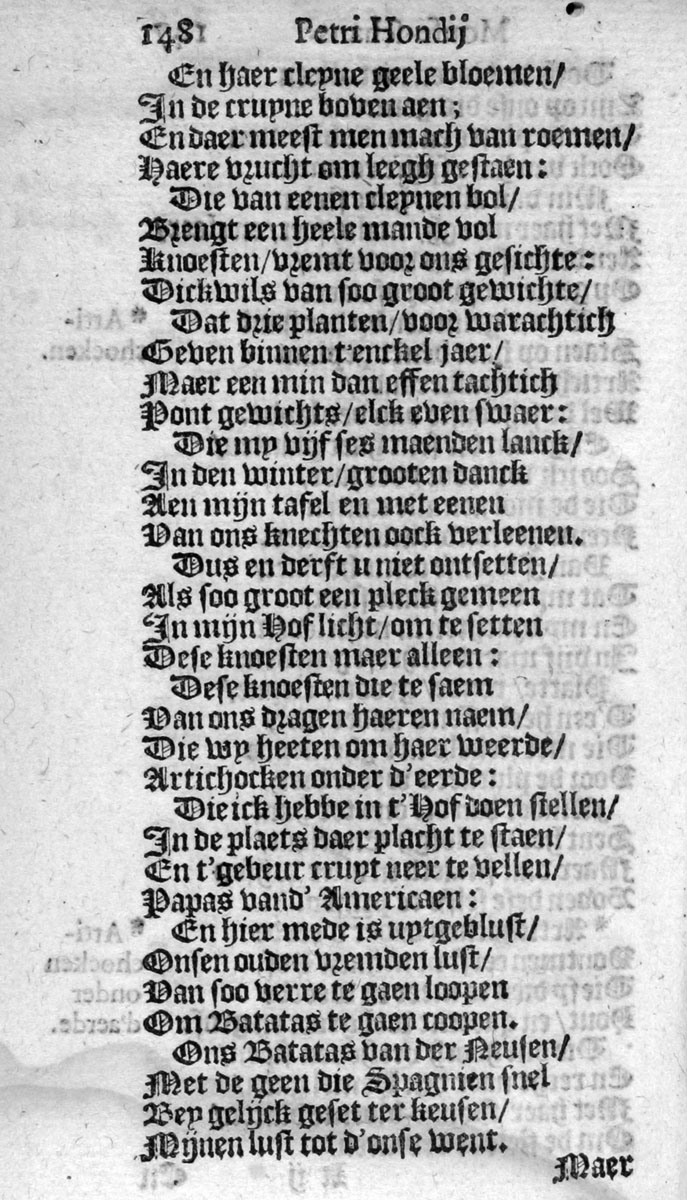 148 Petri Hondij
En haer cleyne geele bloemen/
In de cruyne boven aen;
En daer meest men mach van roemen/
Haere vrucht om leegh gestaen:
Die van eenen cleynen bol/
Brengt een heele mande vol
Knoesten/vremt voor ons gesichte:
Dickwils van soo groot gewichte/
Dat drie planten/voor warachtich
Geven binnen t'enckel jaer/
Maer een min dan effen tachtich
Pont gewichts/elck even swaer:
Die my vijf ses maenden lanck/
In den winter/grooten danck
Aen mijn tafel en met eenen
Van ons knechten oock verleenen.
Dus en derft u niet ontsetten/
Als soo groot een pleck gemeen
In mijn Hof licht/om te setten
Dese knoesten maer alleen:
Dese knoesten die te saem
Van ons dragen haeren naem/
Die wy heeten om haer weerde/
Artichocken onder d'eerde:
Die ick hebbe in t'Hof doen stellen/
In de plaets daer placht te staen/
En t'gebeur cruyt neer te vellen/
Papas vand' Americaen:
En hier mede is uytgeblust/
Onsen ouden vremden lust/
Van soo verre te gaen loopen
Om Batatas te gaen coopen.
Ons Batatas van der Neusen/
Met de geen die Spagnien snel
Bey gelijck geset ter keusen/
Mijnen lust tot d'onse went.
Maer